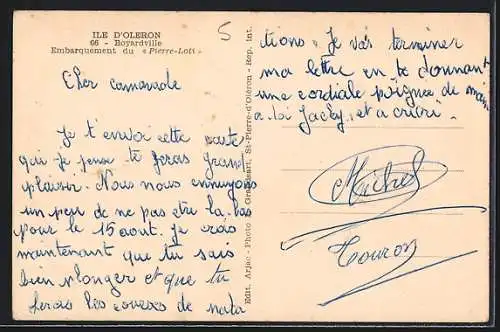 ILE D'OLERON
66 - Boyardville
Embarquement du « Pierre-Loti »
5
Cher camarade
Je t'envoi cette carte
qui je pense te feras grand
plaisir. Nous nous ennuyons
un peu de ne pas etre la-bas
pour le 15 aout. Je crois
maintenant que tu sais
bien plonger et que tu
feras les courses de nata
tions. Je vais terminer
ma lettre en te donnant
une cordiale poignee de main
a toi Jacky, et a
Michel
Touron
Edit. Arjac - Photo St-Pierre-d'Oléron - Rep. Int.